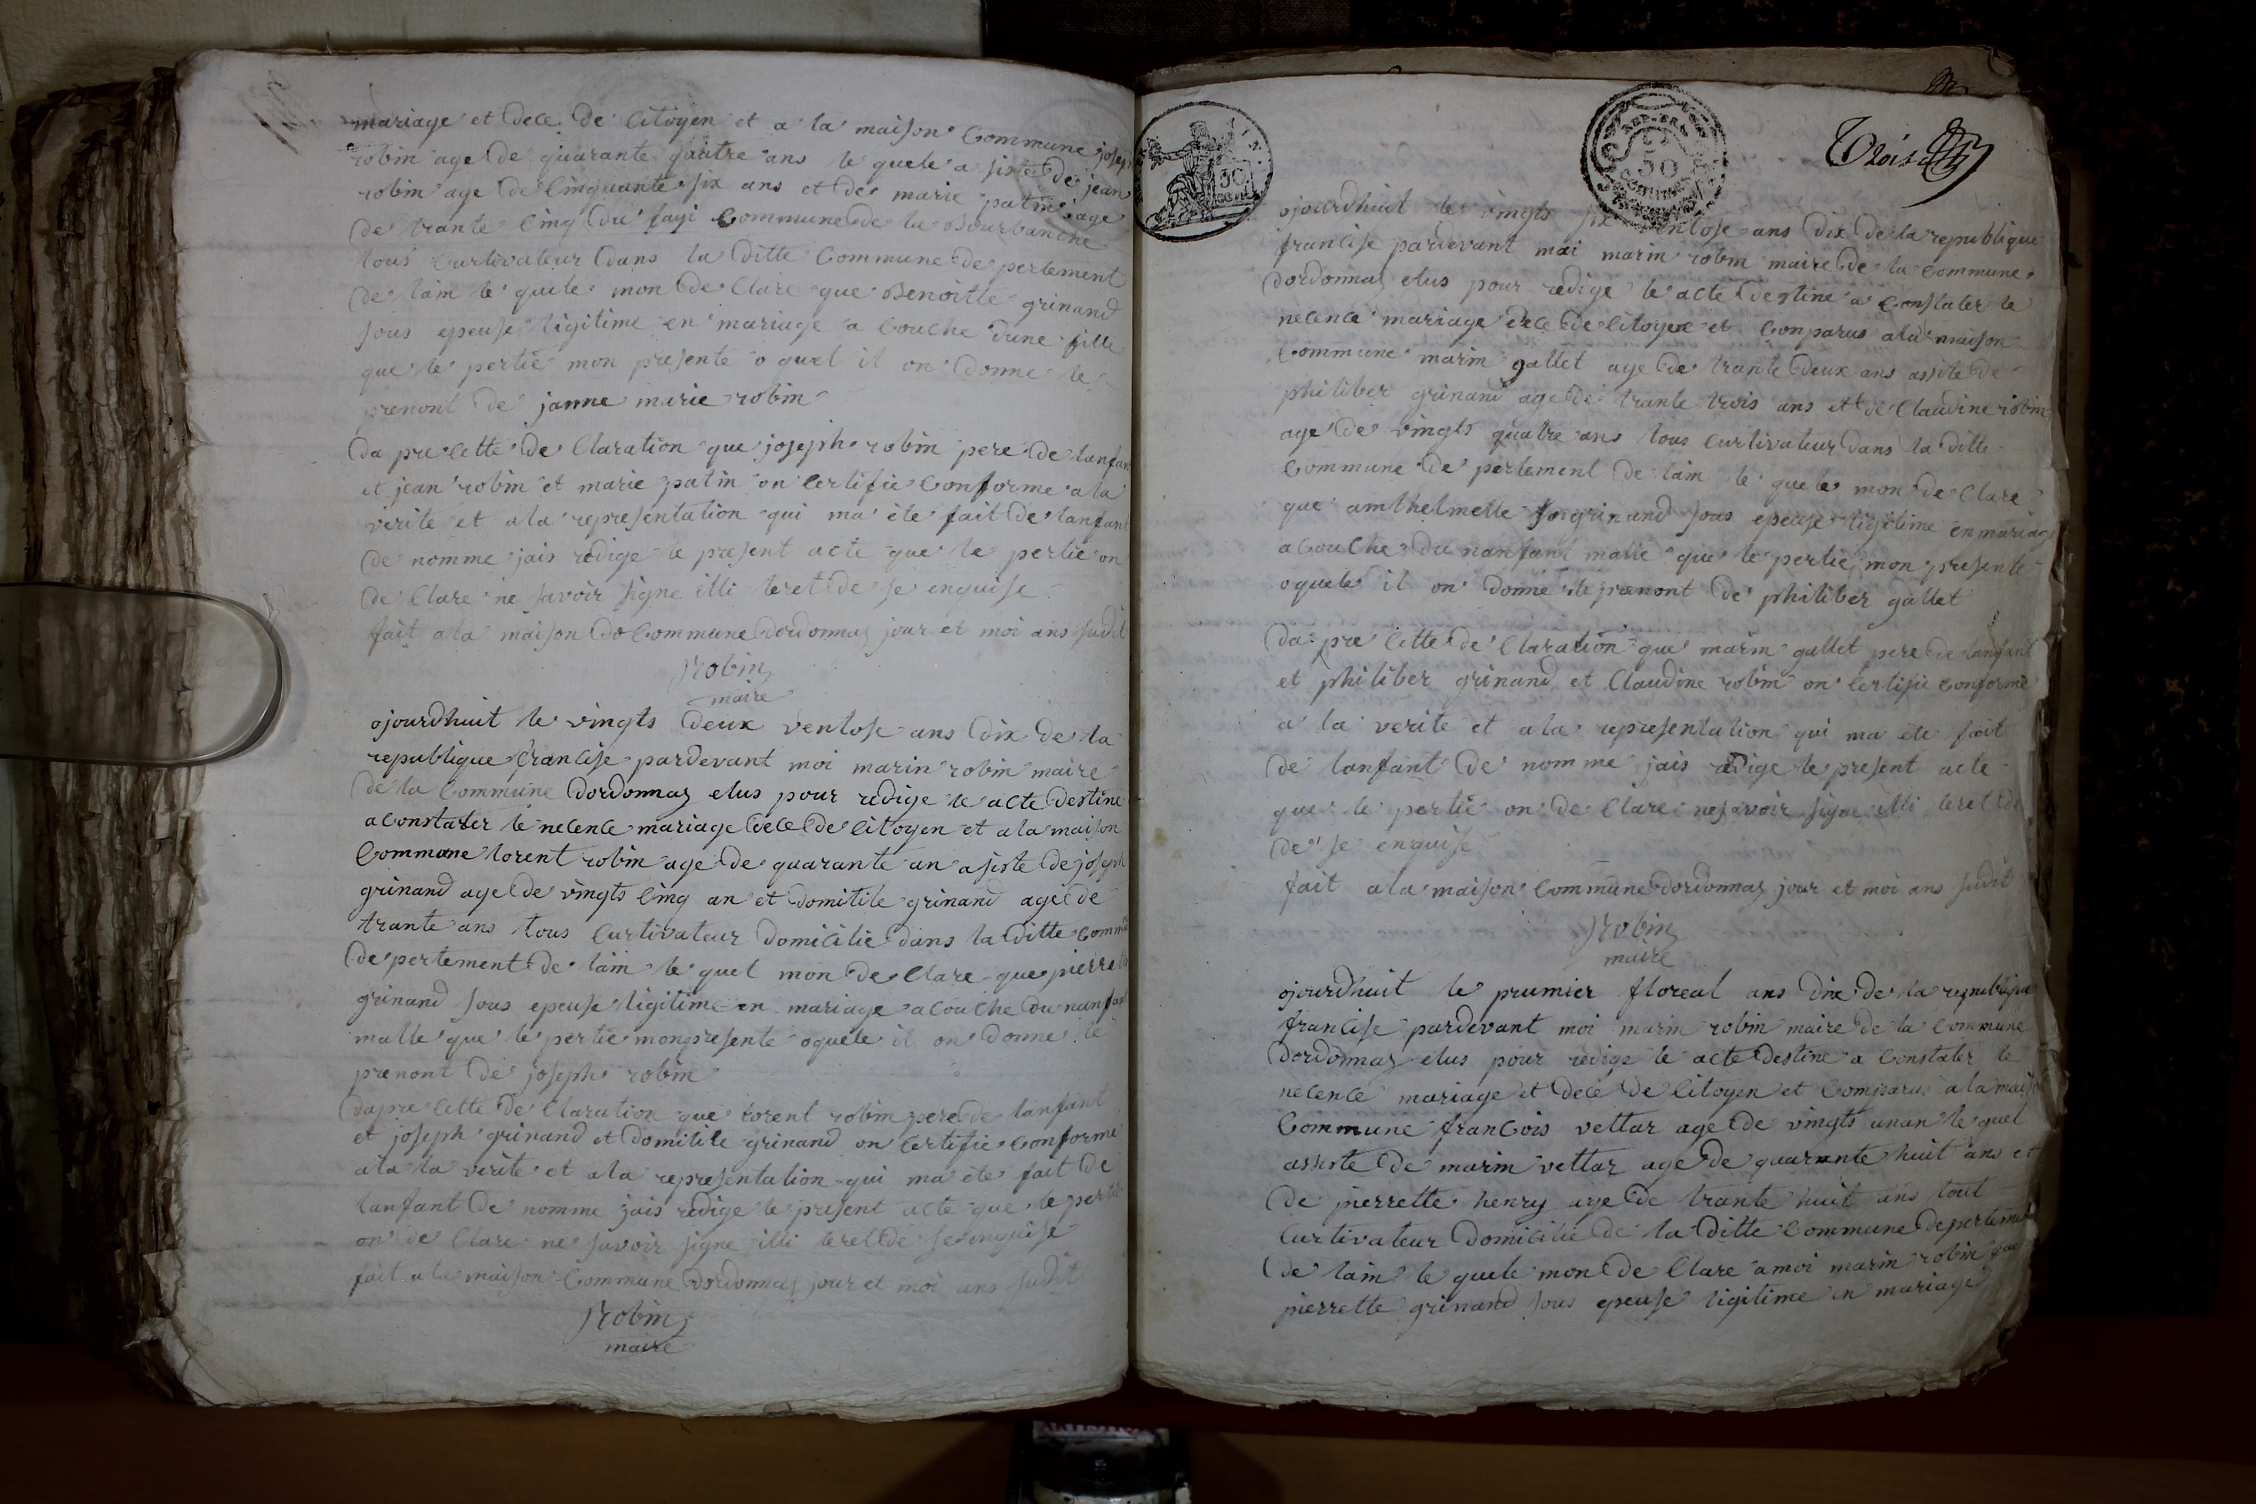 mariage et dece de Citoyen et a la maison Commune joseph
robin age de quarante quatre ans le quele a siste de jean
robin age de Cinquante six ans et de marie patin age
de trante Cinq du fayi Commune de la Bourbanche
tous Curtivateur dans la ditte Commune de pertement
de lain le quele mon de Clare que Benoitte grinand
sous epeuse ligitime en mariage a Couche dune fille
que le pertie mon presente o quel il on donne le
prenont de janne marie robin
da pre Cette de Claration que joseph robin pere de lanfan
et jean robin et marie patin on Certifie Conforme a la
verite et a la representation qui ma ete fait de lanfan
de nomme jais redige le present acte que le pertie on
de Clare ne savoir signe illi teret de se enquise
fait a la maison de Commune dordonnaz jour et moi ans sudit
Robin
maire
ojourdhuit le vingts deux ventose ans dix de la
republique francise pardevant moi marin robin maire
de la Commune dordonnaz elus pour redige le acte destine
a Constater le necence mariage dece de Citoyen et a la maison
Commune lorent robin age de quarante un a siste de joseph
grinand age de vingts Cinq an et domitile grinand age de
trante ans tous Curtivateur domicilie dans la ditte Comm
de pertement de lain le quel mon de Clare que pierrete
grinand sous epeuse ligitime en mariage a Couche du nanfan
malle que le pertie mon presente oquele il on donne le
prenont de joseph robin
dapre Cette de Claration que lorent robin pere de lanfant
et joseph grinand et domitile grinand on Certifie Conforme
a la la verite et a la representation qui ma ete fait de
lanfant de nomme jais redige le present acte que le pertie
on de Clare ne savoir signe illi teret de se enquise
fait a la maison Commune dordonnaz jour et moi ans sudit
Robin
maire
REP. FRA.
50
30
Trois
ojourdhuit le vingts six ventose ans dix de la republique
francise pardevant moi marin robin maire de la Commune
dordonnaz elus pour redige le acte destine a Constater le
necence mariage dece de Citoyen et Conparus a la maison
Commune marin gallet age de trante deux ans assite de
philiber grinand age de trante trois ans et de Claudine robin
age de vingts quatre ans tous Curtivateur dans la ditte
Commune de pertement de lain le quele mon de Clare
que amthelmette grinand sous epeuse ligitime en mariag
a Couche du nanfant malle que le pertie mon presente
oquele il on donne le prenont de philiber gallet
da pre Cette de Claration que marin gallet pere de lanfant
et philiber grinand et Claudine robin on Certifie Conforme
a la verite et a la representation qui ma ete fait
de lanfant de nomme jais redige le present acte
que le pertie on de Clare ne savoir signe illi teret de
de se enquise
fait a la maison Commune dordonnaz jour et moi ans sudit
Robin
maire
ojourdhuit le prumier floreal ans dix de la republique
francise pardevant moi marin robin maire de la Commune
dordonnaz elus pour redige le acte destine a Constater le
necence mariage et dece de Citoyen et Comparus a la maiso
Commune francois vettar age de vingts unan le quel
assiste de marin vettar age de quarante huit ans et
de pierrette henry age de trante huit ans tout
Curtivateur domicilie de la ditte Commune depertement
de lain le quele mon de Clare a moi marin robin que
pierrette grinand sous epeuse ligitime en mariage